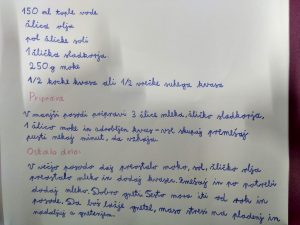 150 ml tople vode
žlica olja
pol žličke soli
1 žlička sladkorja
250 g moke
1/2 kocke kvasa ali 1/2 vrečke suhega kvasa
Priprava
V manjši posodi pripravi 3 žlice mleka, žličko sladkorja,
1 žlico moke in zdrobljen kvas - vse skupaj premešaj
pusti nekaj minut, da vzhaja.
Ostalo delo:
V večjo posodo daj preostalo moko, sol, žličko olja
preostalo mleko in dodaj kvasec. Zmešaj in po potrebi
dodaj mleko. Dobro gneti. Testo mora iti od rok in
posode. Da boš lažje gnetel, maso stresi na pladenj in
nadaljuj z gnetenjem.